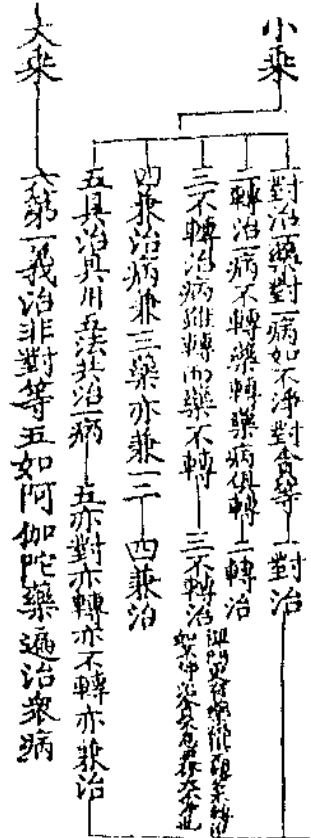 小乘
一對治一藥對一病如不淨對貪等 一對治
二轉治病不轉藥轉藥病俱轉 二轉治
三不轉治病雖轉而藥不轉 三不轉治
四兼治病兼二三藥亦兼二三 四兼治
五具治具用五法共治一病 五亦對亦轉亦不轉亦兼治
大乘
六第一義治非對等五如阿伽陀藥遍治衆病